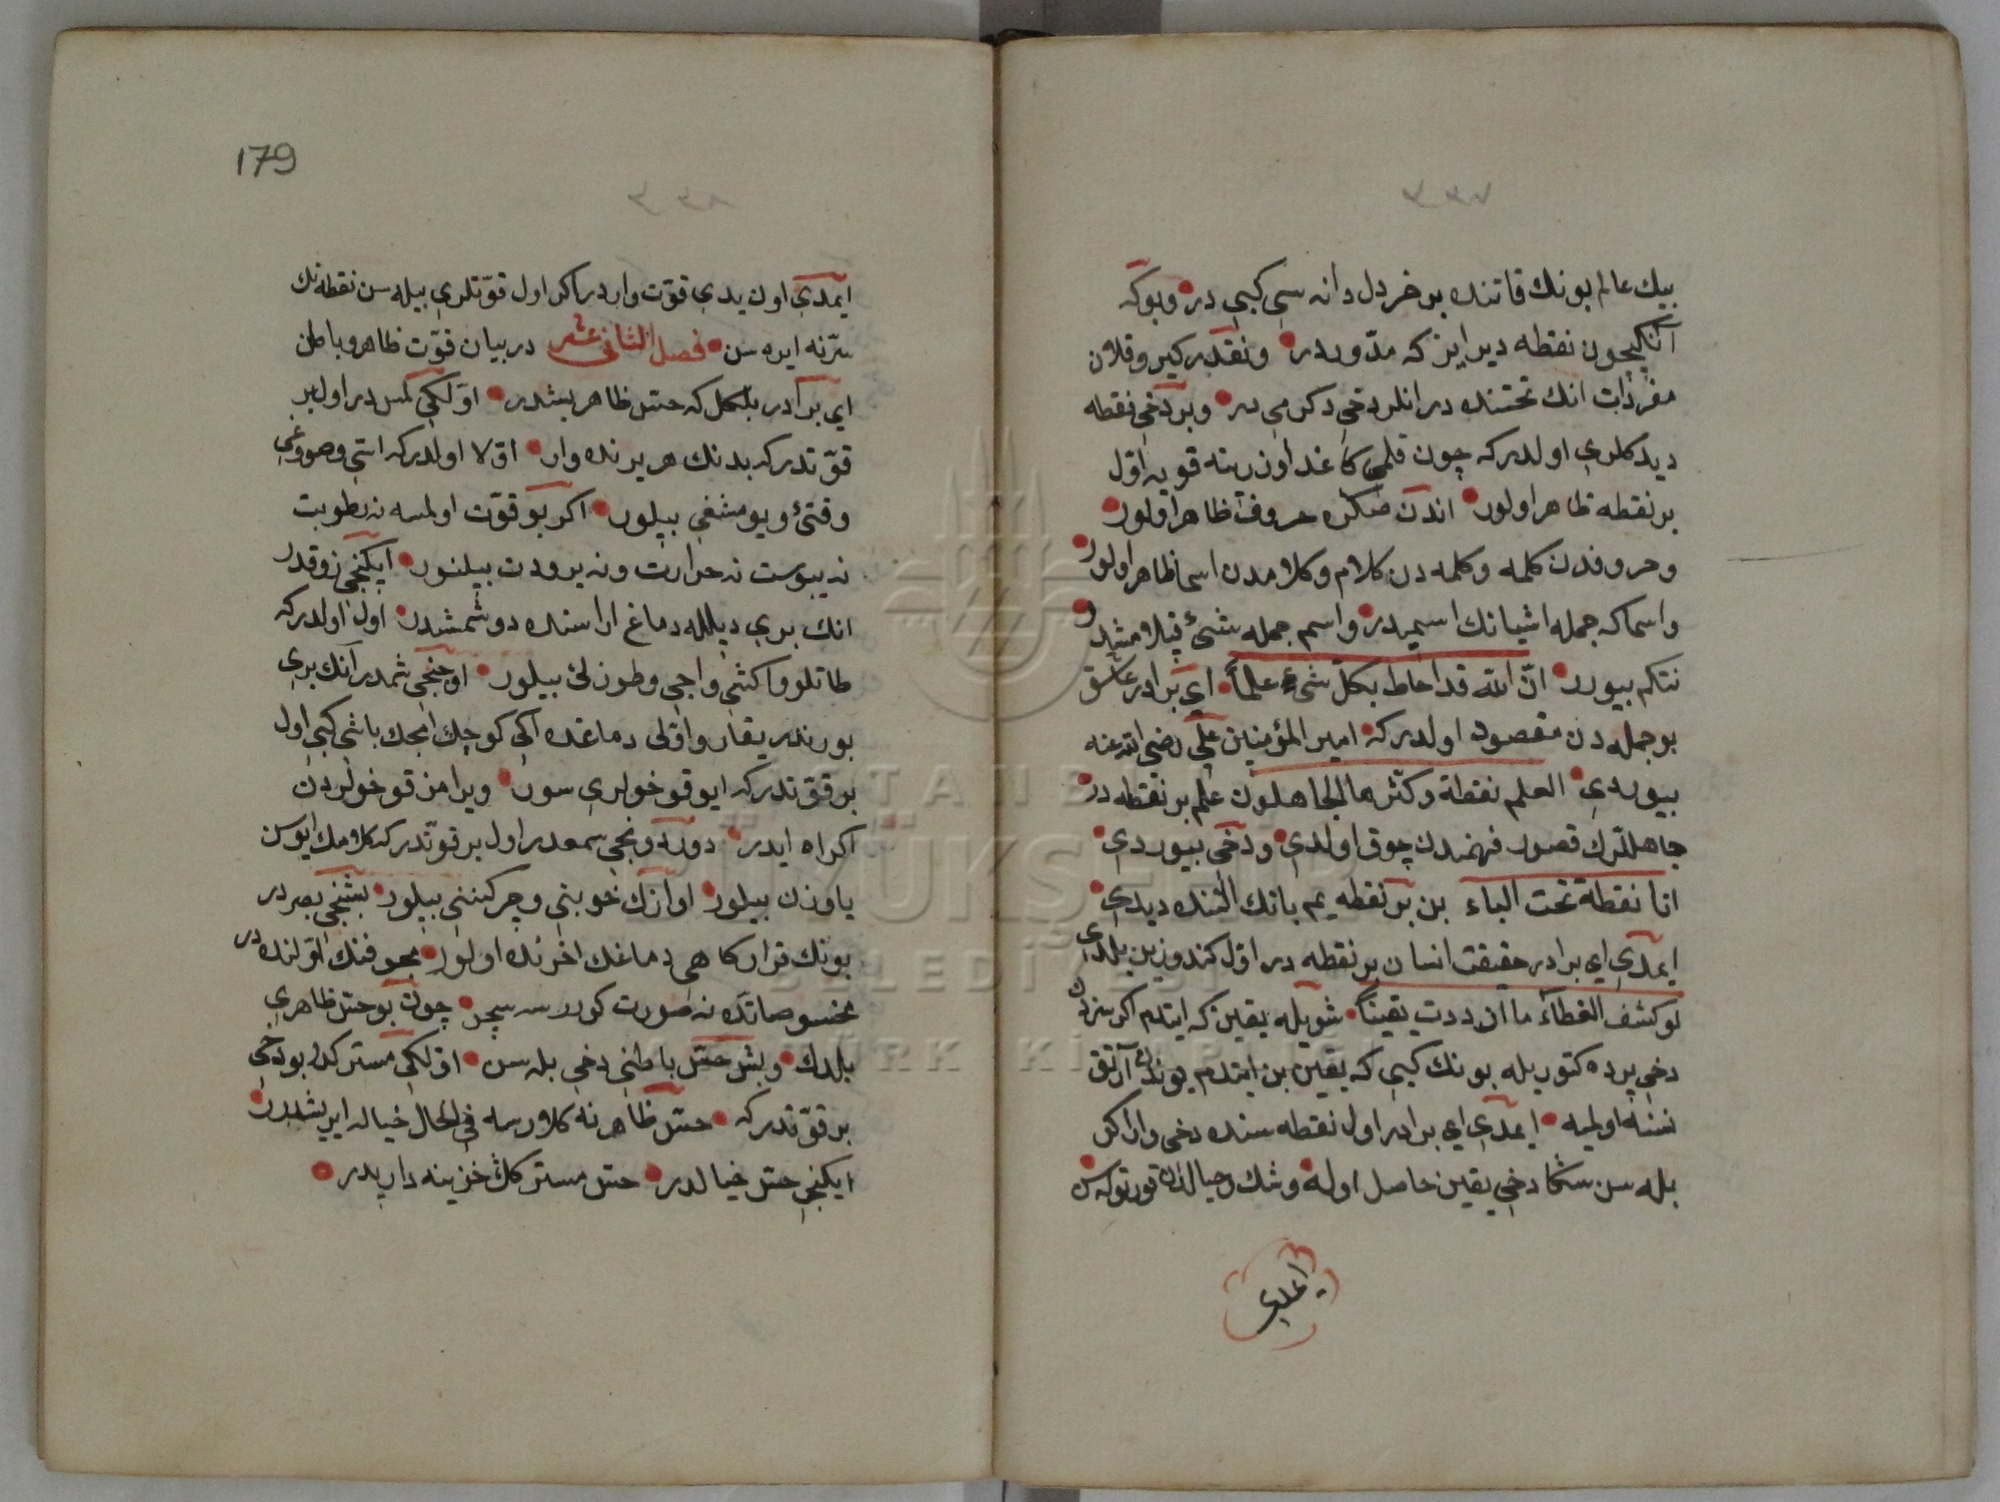 بيك عالم بونك قاتنده بر خردل دانه سى كبى در وبوكه
آنكيچون نقطه ديرايز كه مدّوردر ونقدر كير وقلان
مفردات انك تحتنده در انلر دخى دكرمى در وبر دخى نقطه
ديدكلرى اولدر كه چون قلمى كاغد اوزرينه قويه اوّل
بر نقطه ظاهر اولور اندن صكره حروف ظاهر اولور
وحروفدن كلمه وكلمه دن كلام وكلامدن اسما ظاهر اولور
واسما كه جمله اشيانك اسميدر واسم جمله شئ
نتكم بيورر انّ الله قد احاط بكلّ شىء علماً اى برادر عاشق
بو جمله دن مقصود اولدر كه امير المؤمنين على رضى الله عنه
بيوردى العلم نقطة وكثّرها الجاهلون علم بر نقطه در
جاهللرك قصور فهمندن چوق اولدى ودخى بيوردى
انا نقطة تحت الباء بن بر نقطه يم بانك التنده ديدى
ايمدى اى برادر حقيقت انسان بر نقطه در اوّل كندوزين بلدى
لو كشف الغطاء ما ازددت يقيناً شويله يقين كه ايتدم اكر
دخى پرده كتوريله بونك كبى كه يقين بن ايتدم بوندن آرتق
نسنه اولميه ايمدى اى برادر اول نقطه سنده دخى وار اكر
بله سن سكا دخى يقين حاصل اوله وشك وخيالدن قورتوله سن
ايمدى
179
ايمدى اون يدى قوّت واردر اكر اول قوّتلرى بيله سن نقطه نك
سرّنه ايره سن فصل الثانى عشر در بيان قوّت ظاهر وباطن
اى برادر بلكل كه حسّ ظاهر بشدر اوّلكى لمس در اول بر
قوّتدر كه بدنك هر يرنده وار اوّلا اولدر كه استى وصووغى
وقتئ ويومشغى بيلور اكر بو قوّت اولمسه نه رطوبت
نه يبوست نه حرارت ونه برودت بيلنور ايكنجى ذوقدر
انك يرى ديلله دماغ اراسنده دوشمشدر اول اولدر كه
طاتلو واكشى واجى وطوزلئ بيلور اوچنجى شمدر آنك يرى
بورندر يقارو اوّلى دماغده اكى كوچك امجك باشى كبى اول
بر قوّتدر كه ايو قوخولرى سور ويرامز قوخولردن
اكراه ايدر دوردونجى سمعدر اول بر قوّتدر كه كلامك ايوسن
ياوزن بيلور اوازك خوبتى وچركننى بيلور بشنجى بصردر
بونك قراركاهى دماغك اخرنده اولور مجوفنك اوّلنده در
محسوصاتده نه صورت كورسه سچر چون بو حسّ ظاهرى
بلدك وبش حسّ باطنى دخى بله سن اوّلكى مسترك در بو دخى
بر قوّتدر كه حسّ ظاهر نه كلورسه فى الحال خياله ايريشدرر
ايكنجى حسّ خيالدر حسّ مستركك خزينه داريدر